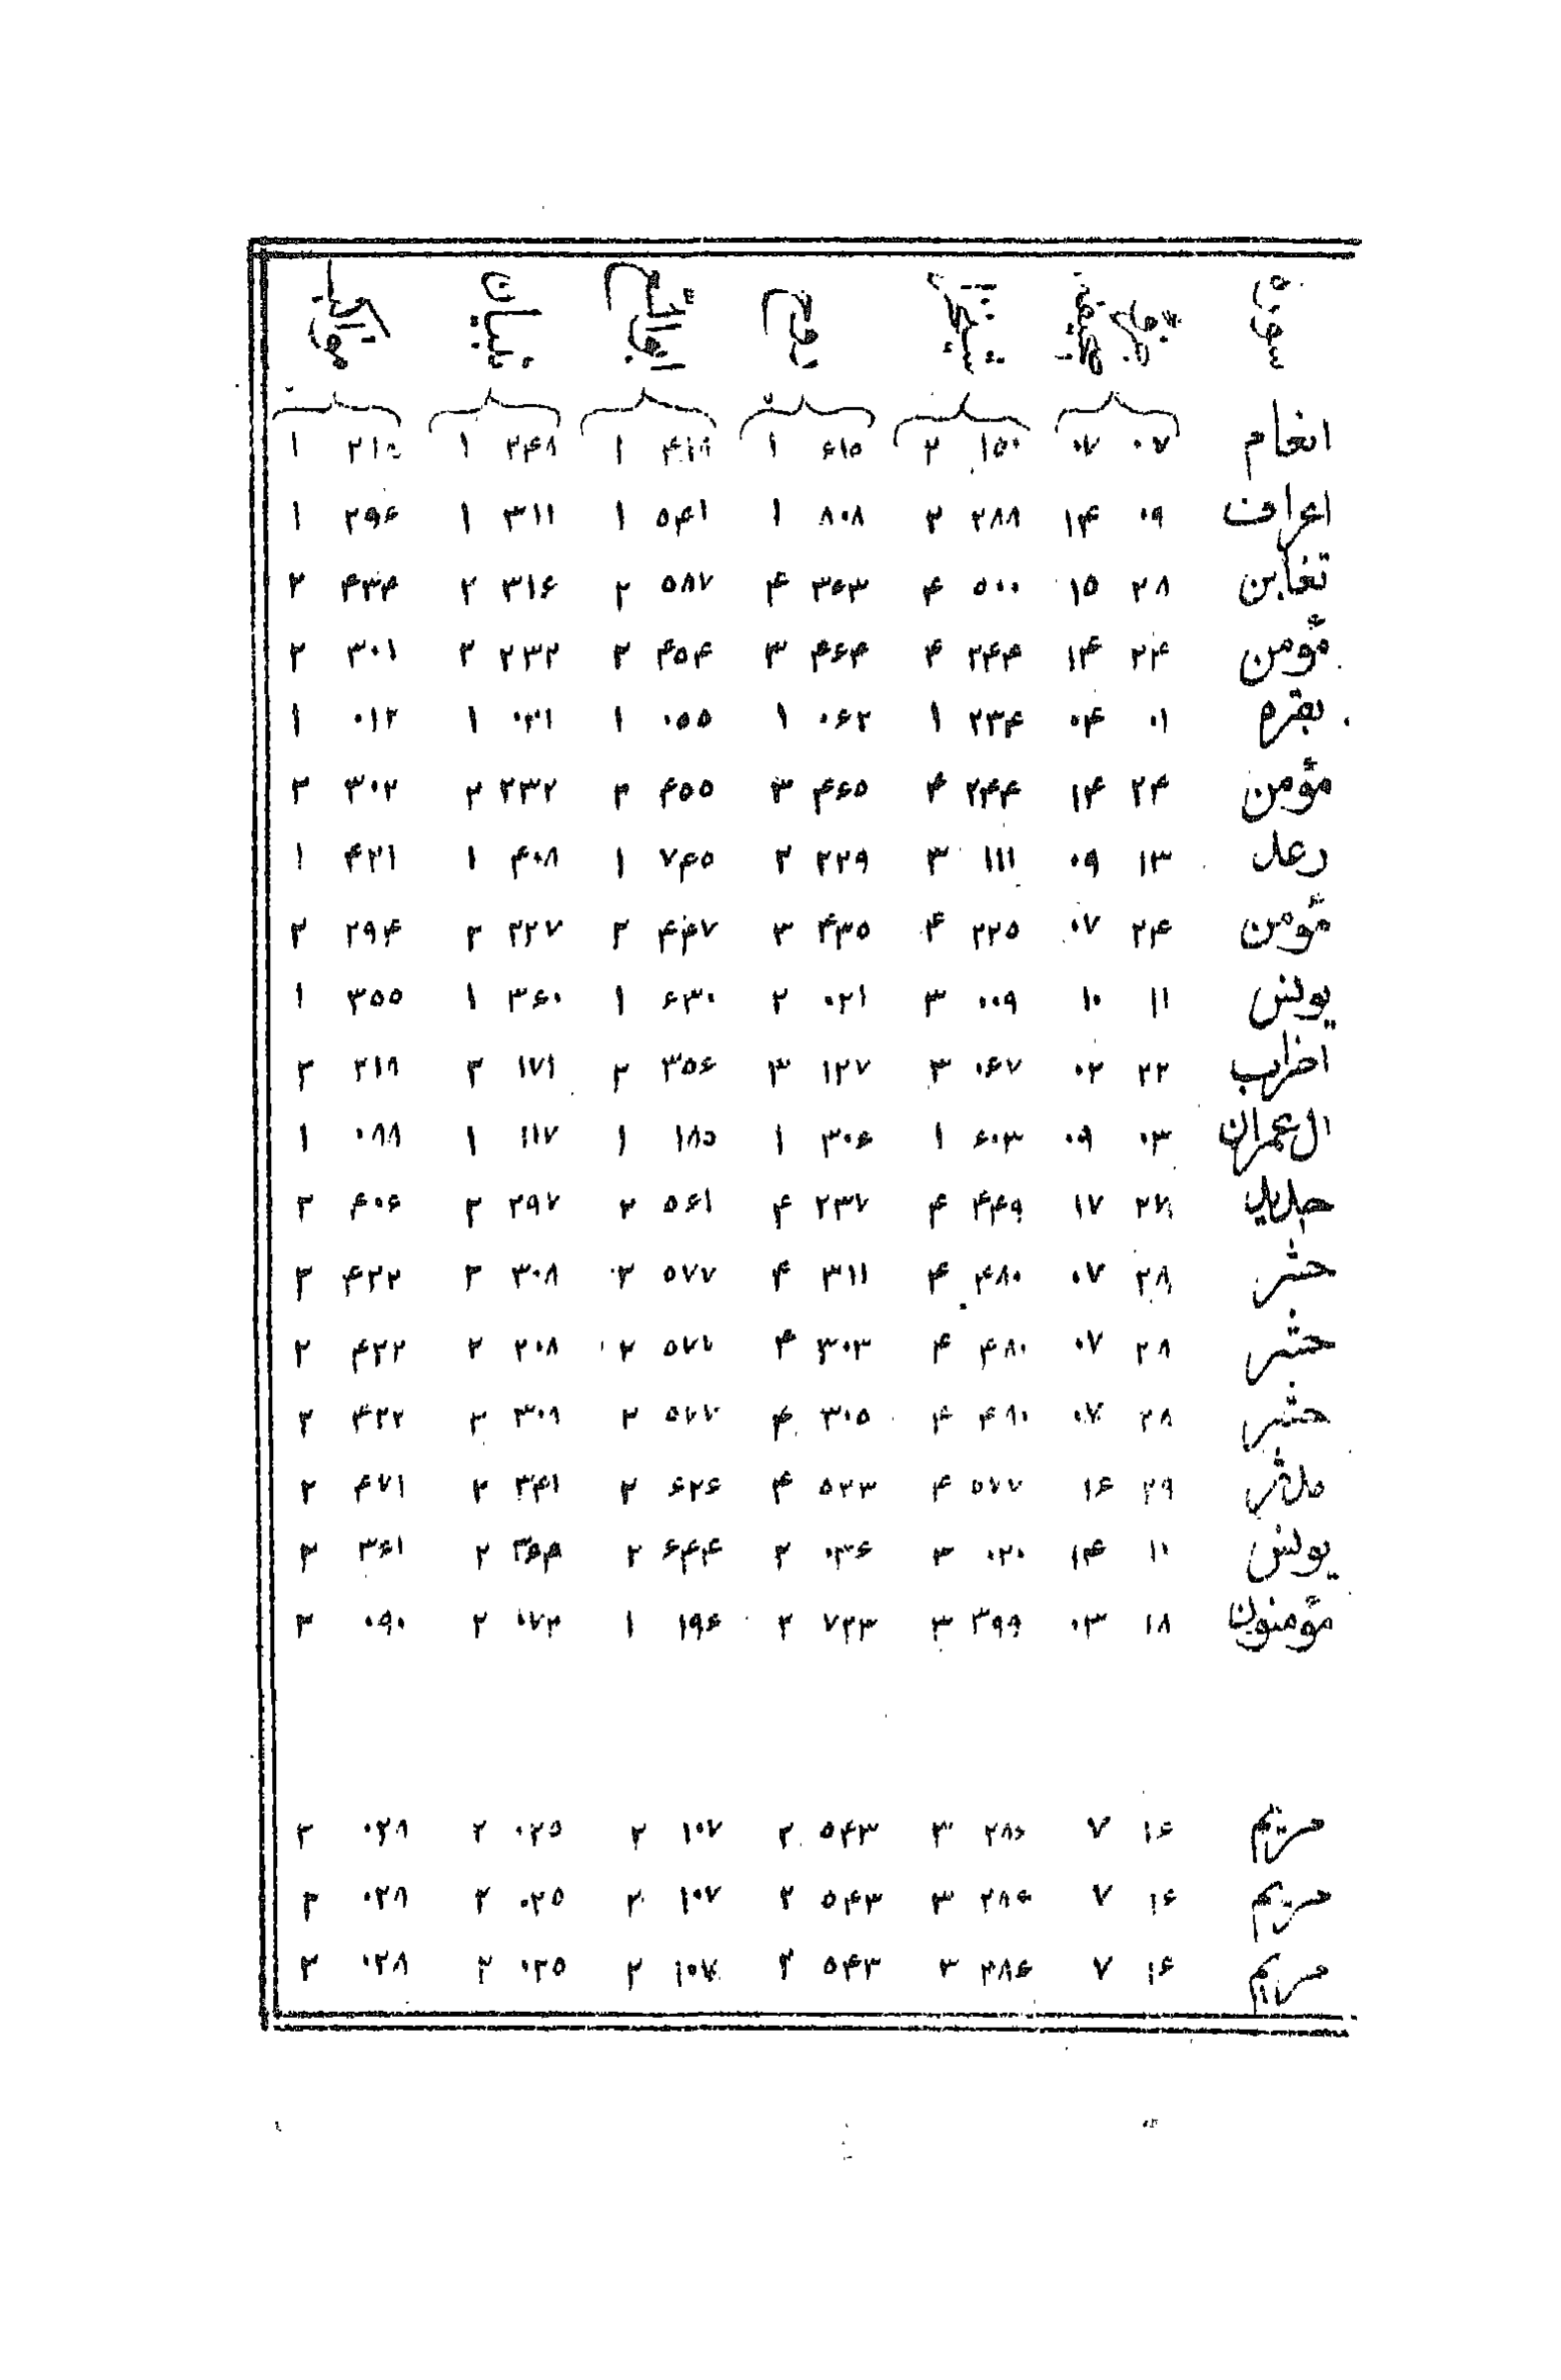 انعام ۰۷ ۰۷ ۱۵۰ ۲ ۶۱۵ ۱ ۴۱۹ ۱ ۲۴۸ ۱ ۱
اعراف ۰۹ ۱۴ ۲۸۸ ۲ ۸۰۸ ۱ ۵۴۱ ۱ ۳۱۱ ۱ ۲۹۶ ۱
تغابن ۲۸ ۱۵ ۵۰۰ ۴ ۳۶۳ ۴ ۵۸۷ ۲ ۳۱۶ ۲ ۴۳۴ ۲
مؤمن ۲۴ ۱۴ ۲۴۴ ۴ ۴۶۴ ۳ ۴۵۴ ۲ ۲۳۲ ۲ ۳۰۱ ۲
بقره ۰۱ ۰۴ ۲۳۴ ۱ ۰۶۲ ۱ ۰۵۵ ۱ ۰۲۱ ۱ ۰۱۲ ۱
مؤمن ۲۴ ۱۴ ۲۴۴ ۴ ۴۶۵ ۳ ۴۵۵ ۲ ۲۳۲ ۲ ۳۰۲ ۲
رعد ۱۳ ۰۹ ۱۱۱ ۳ ۲۲۹ ۲ ۷۴۵ ۱ ۴۰۸ ۱ ۴۲۱ ۱
مؤمن ۲۴ ۰۷ ۲۲۵ ۴ ۴۳۵ ۳ ۴۴۷ ۲ ۲۲۷ ۲ ۲۹۴ ۲
یونس ۱۱ ۱۰ ۰۰۹ ۳ ۰۲۱ ۲ ۶۳۰ ۱ ۳۶۰ ۱ ۳۵۵ ۱
احزاب ۲۲ ۰۲ ۰۶۷ ۳ ۱۲۷ ۳ ۳۵۶ ۲ ۱۷۱ ۲ ۲۱۸ ۲
ال عمران ۰۳ ۰۹ ۶۰۳ ۱ ۳۰۶ ۱ ۱۸۵ ۱ ۱۱۷ ۱ ۰۸۸ ۱
حدید ۲۷ ۱۷ ۴۴۹ ۴ ۲۳۷ ۴ ۵۶۱ ۲ ۲۹۷ ۲ ۴۰۶ ۲
حشر ۲۸ ۰۷ ۴۸۰ ۴ ۳۱۱ ۴ ۵۷۷ ۲ ۳۰۸ ۲ ۴۲۲ ۲
حشر ۲۸ ۰۷ ۴۸۰ ۴ ۳۰۳ ۴ ۵۷۷ ۲ ۲۰۸ ۲ ۴۲۲ ۲
حشر ۲۸ ۰۷ ۴۸۰ ۴ ۳۰۵ ۴ ۵۷۷ ۲ ۳۰۸ ۲ ۴۲۲ ۲
مدثر ۲۹ ۱۶ ۵۷۷ ۴ ۵۲۳ ۴ ۶۲۶ ۲ ۳۴۱ ۲ ۴۷۱ ۲
یونس ۱۱ ۱۴ ۰۲۰ ۳ ۰۳۶ ۲ ۶۴۴ ۲ ۳۶۴ ۲ ۳۶۱ ۲
مؤمنون ۱۸ ۰۳ ۳۹۹ ۳ ۷۲۳ ۲ ۱۹۶ ۱ ۰۷۲ ۲ ۰۹۰ ۲
مریم ۱۶ ۷ ۲۸۶ ۳ ۵۴۳ ۲ ۱۰۷ ۲ ۰۲۵ ۲ ۰۲۸ ۲
مریم ۱۶ ۷ ۲۸۶ ۳ ۵۴۳ ۲ ۱۰۷ ۲ ۰۲۵ ۲ ۰۲۸ ۲
مریم ۱۶ ۷ ۲۸۶ ۳ ۵۴۳ ۲ ۱۰۷ ۲ ۰۲۵ ۲ ۰۲۸ ۲